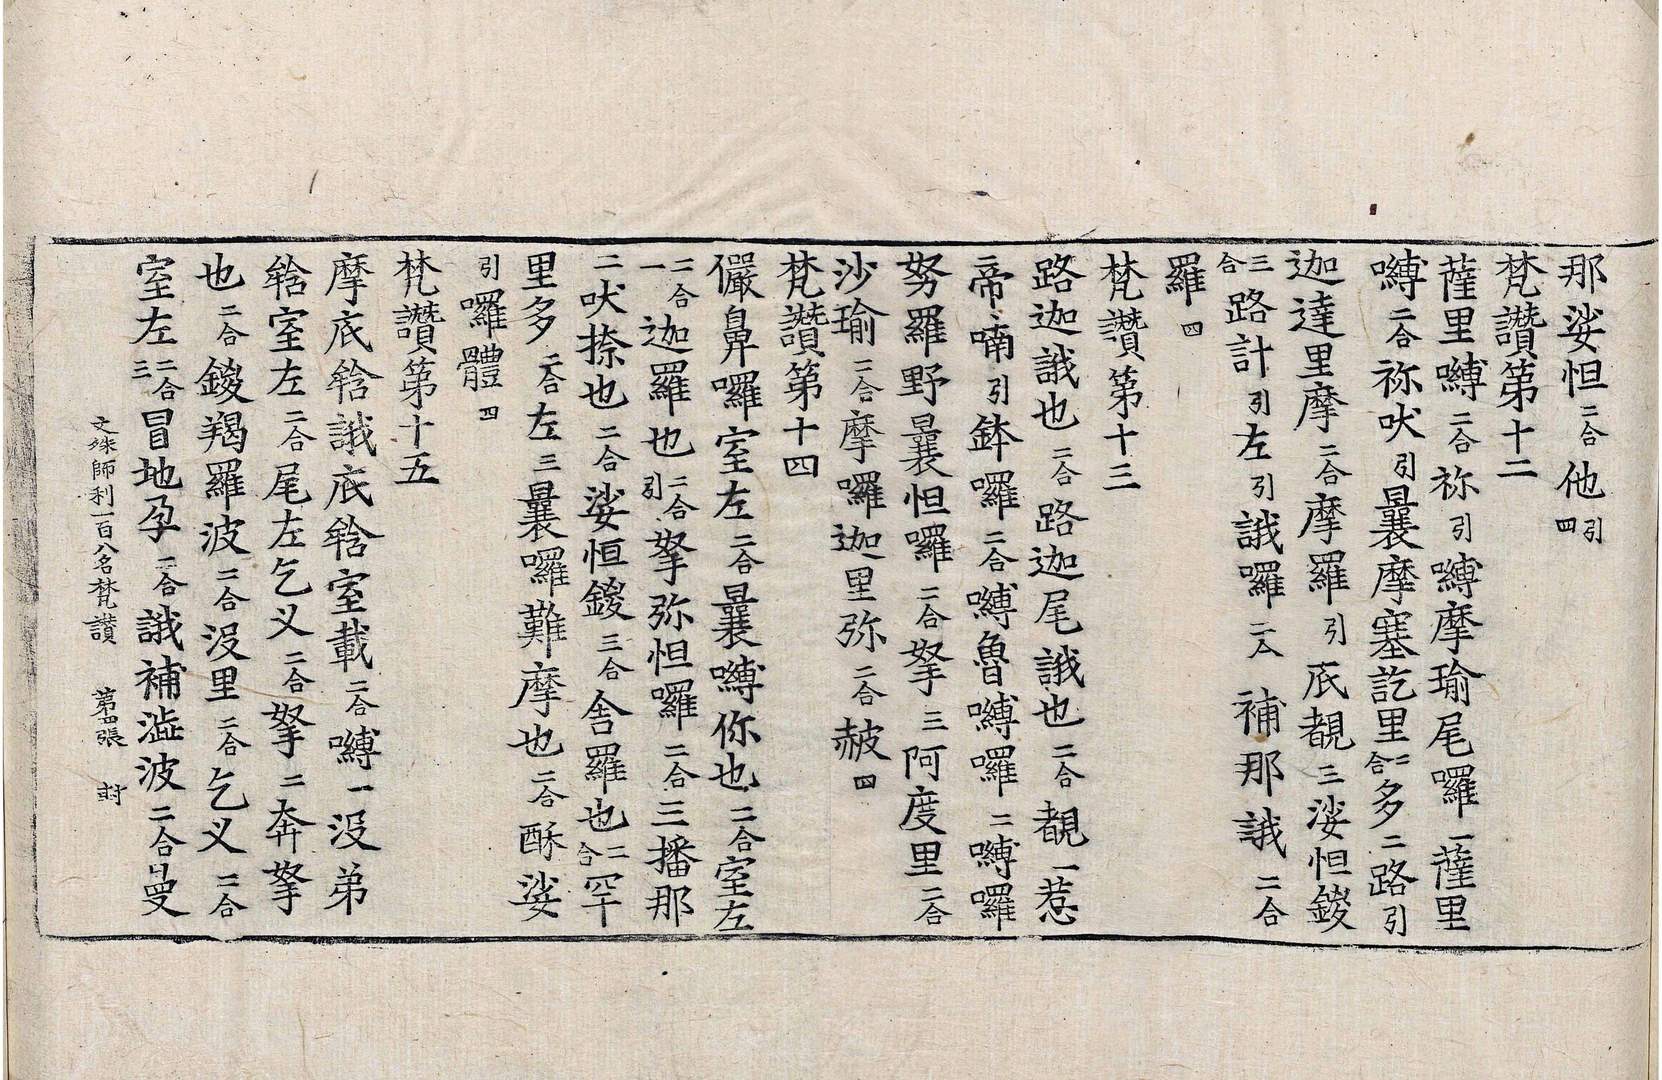 那娑怛二合他引四
梵讚第十二
薩里嚩二合祢引嚩摩瑜尾囉一薩里
嚩二合祢吠引曩摩塞訖里二合多二路引
迦達里摩二合摩羅引底覩三娑怛鍐
三合路計引左引誐囉二合補那誐二合
羅四
梵讚第十三
路迦誐也二合路迦尾誐也二合覩一惹
帝喃引鉢囉二合嚩魯嚩囉二嚩囉
努羅野曩怛囉二合拏三阿度里二合
沙瑜二合摩囉迦里弥二合赧四
梵讚第十四
儼鼻囉室左二合曩嚩你也二合室左
二合一迦羅也二合引拏弥怛囉二合三播那
二吠捺也二合娑恒鍐三合舍羅也二合罕
里多二合左三曩囉難摩也二合酥娑
引囉體四
梵讚第十五
摩底𨋢誐底𨋢室載二合嚩一没弟
𨋢室左二合尾左乞义二合拏二奔拏
也二合鍐羯羅波二合没里二合乞义二合
室左二合三冒地孕二合誐補澁波二合曼
文殊師利一百八名梵讚 第四張 封